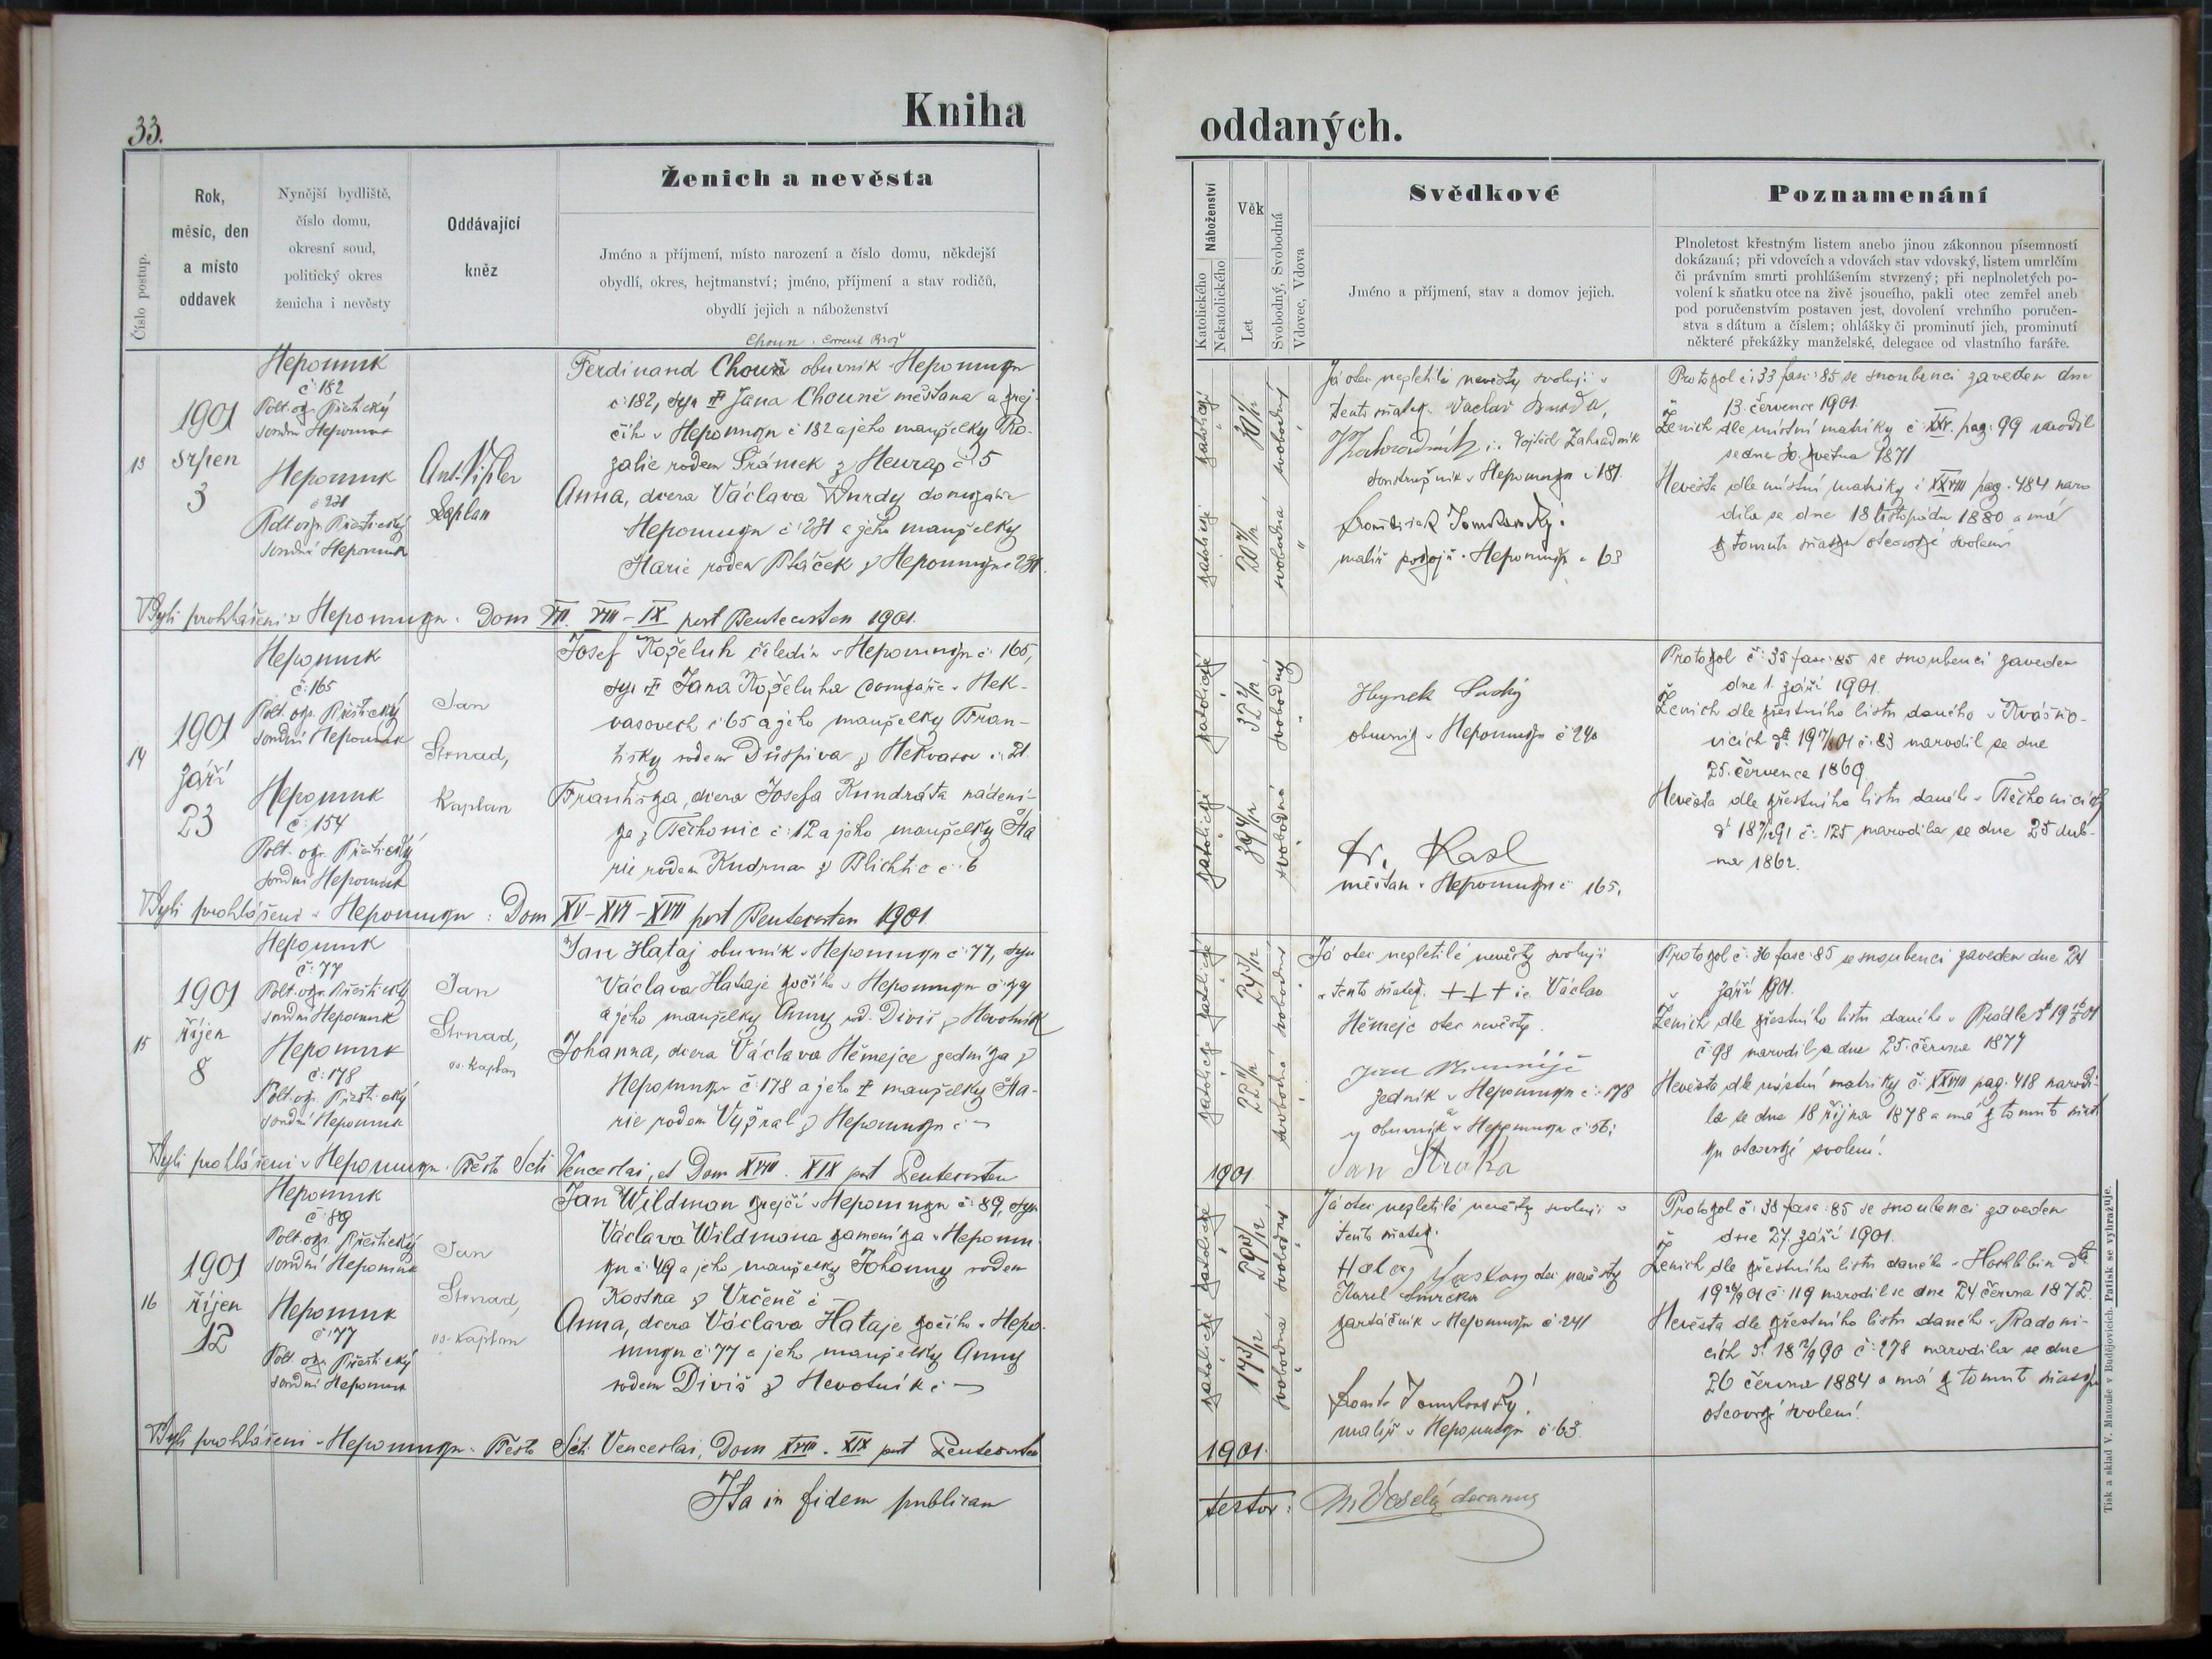 33.
Kniha
oddaných.
Číslo postup.
Rok,
měsíc, den
a místo
oddavek
Nynější bydliště,
číslo domu,
okresní soud,
politický okres
ženicha i nevěsty
Oddávající
kněz
Ženich a nevěsta
Jméno a příjmení, místo narození a číslo domu, někdejší
obydlí, okres, hejtmanství; jméno, příjmení a stav rodičů,
obydlí jejich a náboženství
Choun
13
1901
srpen
3
Nepomuk
č 182
Polit. okr. Přeštický
soudní Nepomuk
Nepomuk
Polit. okr. Přeštický
soudní Nepomuk
Ant.
kaplan
Ferdinand Choun obuvník v Nepomuku
č 182, syn Jana Chouně měšťana a krej-
čího v Nepomuku č 182 a jeho manželky Ro-
zalie rodem Šrámek z č 5
Anna, dcera Václava domkáře
Nepomuku č 231 a jeho manželky
Marie rodem Ptáček z Nepomuku č 231.
Byli prohlášeni v Nepomuku. Dom VII. VIII - IX post Pentecosten 1901.
14
1901
září
23
Nepomuk
č. 165
Polit. okr. Přeštický
soudní Nepomuk
Nepomuk
č. 154
Polit. okr. Přeštický
soudní Nepomuk
Jan
Strnad,
Kaplan
Josef Koželuh čeledín v Nepomuku č 165,
syn Jana Koželuha domkáře v Nek-
vasovech č 65 a jeho manželky Fran-
tišky rodem Důspiva z Nekvasov č. 21.
Františka, dcera Josefa Kundráta nádení-
ka z Těchonic č. 12 a jeho manželky Ma
rie rodem Kudrna z Plichtic č. 6
Byli prohlášeni v Nepomuku: Dom XV - XVI - XVII post Pentecosten 1901.
15
1901
říjen
8
Nepomuk
č. 77
Polit. okr. Přeštický
soudní Nepomuk
Nepomuk
č. 178
Polit. okr. Přeštický
soudní Nepomuk
Jan
Strnad,
os. kaplan
Jan Hataj obuvník v Nepomuku č 77, syn
Václava Hataje kočího v Nepomuku č 77
a jeho manželky Anny rod. Diviš z Novotník
Johanna, dcera Václava Němejce zedníka z
Nepomuku č. 178 a jeho manželky Ma-
rie rodem Vyžral z Nepomuku č –
Byli prohlášeni v Nepomuku. Festo Scti Venceslai, et Dom XVIII. XIX post Pentecosten
16
1901
říjen
12
Nepomuk
č. 89
Polit. okr. Přeštický
soudní Nepomuk
Nepomuk
č. 77
Polit. okr. Přeštický
soudní Nepomuk
Jan
Strnad,
os. kaplan
Jan Wildman krejčí v Nepomuku č. 89, syn
Václava Wildmana kameníka v Nepomu-
ku č 49 a jeho manželky Johanny rodem
Kostka z Vrčeně č –
Anna, dcera Václava Hataje kočího v Nepo-
muku č. 77 a jeho manželky Anny
rodem Diviš z Novotník č –
Byli prohlášeni v Nepomuku. Festo Scti Venceslai, Dom XVIII. XIX post Pentecosten
Ita in fidem publicam
Náboženství
Katolického
Nekatolického
Věk
Let
Svobodný, Svobodná
Vdovec, Vdova
Svědkové
Jméno a příjmení, stav a domov jejich.
Poznamenání
Plnoletost křestným listem anebo jinou zákonnou písemností
dokázaná; při vdovcích a vdovách stav vdovský, listem umrlčím
či právním smrti prohlášením stvrzený; při neplnoletých po-
volení k sňatku otce na živě jsoucího, pakli otec zemřel aneb
pod poručenstvím postaven jest, dovolení vrchního poručen-
stva s dátum a číslem; ohlášky či prominutí jich, prominutí
některé překážky manželské, delegace od vlastního faráře.
katolické
svobodný
katolické
svobodná
Já otec nepletilé nevěsty svoluji v
tento sňatek. Václav
Vojtěch Zahradník
v Nepomuku č 181.
malíř pokojů v Nepomuku č 63
Protokol č: 33 fasc: 85 se snoubenci zaveden dne
13. července 1901.
Ženich dle místní matriky č XXV. pag: 99 narodil
se dne 30. května 1871
Nevěsta dle místní matriky č XXVIII pag. 484 naro
dila se dne 18 listopadu 1880 a má
k tomuto sňatku otcovské svolení
katolické
svobodný
katolické
svobodná
Hynek
obuvník v Nepomuku č 240
Fr. Kasl
měšťan v Nepomuku č 165.
Protokol č: 35 fasc: 85 se snoubenci zaveden
dne 1. září 1901.
Ženich dle křestního listu daného v Kvášňo-
vicích č. 83 narodil se dne
25. července 1869
Nevěsta dle křestního listu daného v Těchonicích
č. 125 narodila se dne 25 dub-
na 1862.
katolické
svobodný
katolické
svobodná
Já otec nepletilé nevěsty svoluji
v tento sňatek. +++ ie Václav
Němejc otec nevěsty.
zedník v Nepomuku č: 178
obuvník v Nepomuku č 56:
Jan Straka
1901.
Protokol č: 36 fasc: 85 se snoubenci zaveden dne 24
září 1901.
Ženich dle křestního listu daného v Prádle
č 98 narodil se dne 25. června 1877
Nevěsta dle místní matriky č. XXVIII pag. 418 narodi-
la se dne 18 října 1878 a má k tomuto sňat
ku otcovské svolení!
katolické
svobodný
katolické
svobodná
Já otec nepletilé nevěsty svoluji v
tento sňatek.
Hataj otec nevěsty
Karel Smrčka
kartáčník v Nepomuku č 241
malíř v Nepomuku č 63.
1901.
Protokol č: 38 fasc: 85 se snoubenci zaveden
dne 27. září 1901.
Ženich dle křestního listu daného v
č 119 narodil se dne 24 června 1872.
Nevěsta dle křestního listu daného v Kadoni-
cích č. 278 narodila se dne
26 června 1884 a má k tomuto sňatku
otcovské svolení!
testor:
M. Veselý decanus
Tisk a sklad V. Matouše v Budějovicích. Patisk se vyhražuje.